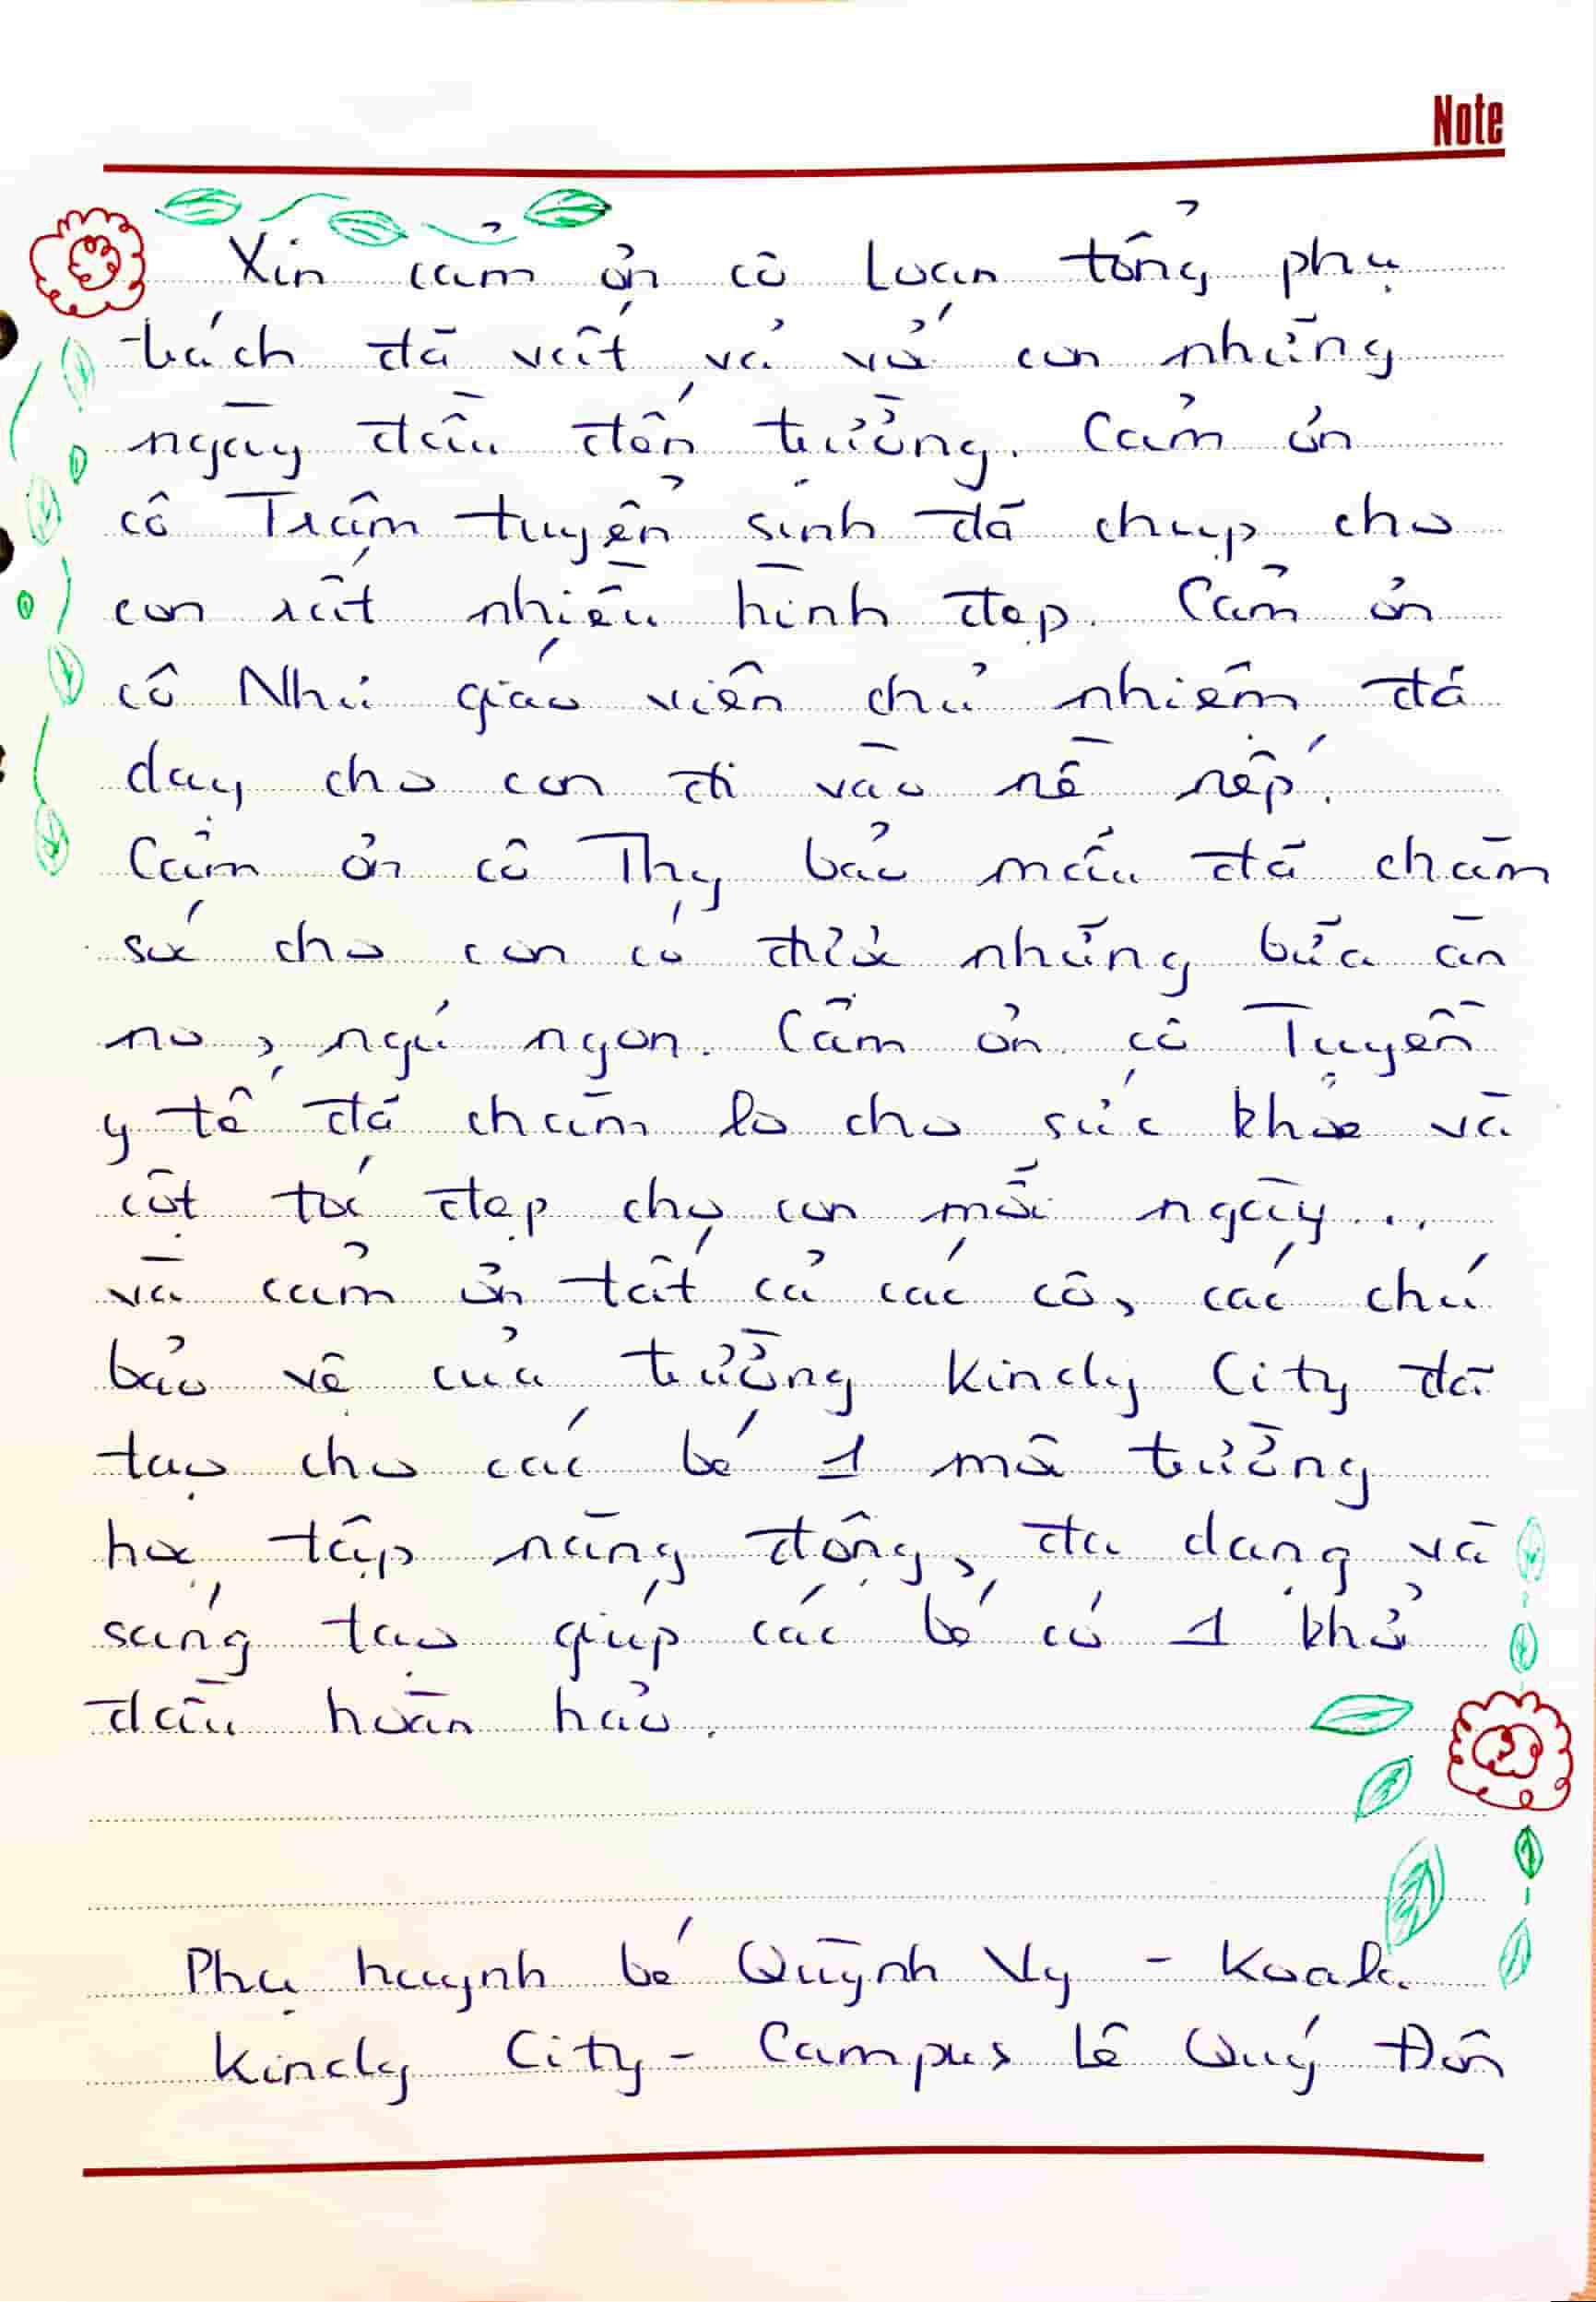 Note
Xin cảm ơn cô Loan tổng phụ
trách đã vất vả với con những
ngày đầu đến trường. Cảm ơn
cô Trâm tuyển sinh đã chụp cho
con rất nhiều hình đẹp. Cảm ơn
cô Như giáo viên chủ nhiệm đã
dạy cho con đi vào nề nếp.
Cảm ơn cô Thy bảo mẫu đã chăm
sóc cho con có được những bữa ăn
no, ngủ ngon. Cảm ơn cô Tuyền
y tế đã chăm lo cho sức khỏe và
cột tóc đẹp cho con mỗi ngày...
và cảm ơn tất cả các cô, các chú
bảo vệ của trường Kindy City đã
tạo cho các bé 1 môi trường
học tập năng động, đa dạng và
sáng tạo giúp các bé có 1 khởi
đầu hoàn hảo.
Phụ huynh bé Quỳnh Vy - Koala
Kindy City - Campus Lê Quý Đôn